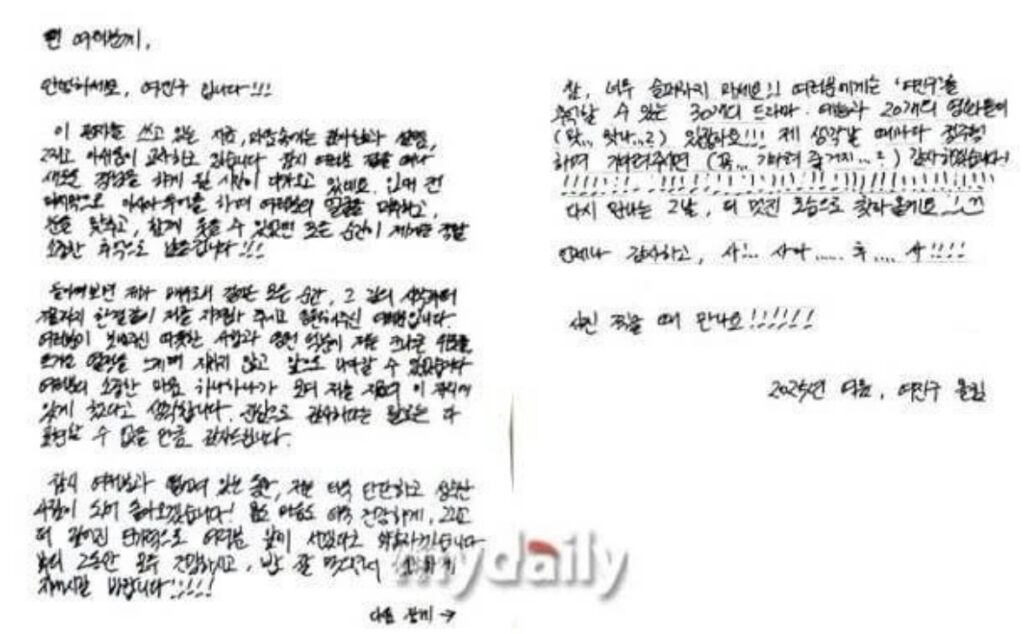 팬 여러분께,
안녕하세요, 여진구 입니다!!!
이 편지를 쓰고 있는 지금, 마음속에는 감사함과 설렘,
그리고 아쉬움이 교차하고 있습니다. 잠시 여러분 곁을 떠나
새로운 경험을 하게 될 시간이 다가오고 있네요. 입대 전
마지막으로 아시아 투어를 하며 여러분의 얼굴을 마주하고,
눈을 맞추고, 함께 웃을 수 있었던 모든 순간이 제게는 정말
소중한 추억으로 남습니다!!!
돌이켜보면 제가 배우로서 걸어온 모든 순간, 그 길의 시작부터
지금까지 한결같이 저를 지켜봐 주시고 응원해주신 여러분입니다.
여러분이 보내주신 따뜻한 사랑과 응원 덕분에 저는
뜨거운 열정을 느끼며 지치지 않고 앞으로 나아갈 수 있었습니다
여러분의 소중한 마음 하나하나가 모여 저를 지금의 이 자리에
있게 했다고 생각합니다. 진심으로 감사하다는 말로는 다
표현할 수 없을 만큼 감사드립니다.
잠시 여러분과 떨어져 있는 동안, 저는 더욱 단단하고 성숙한
사람이 되어 돌아오겠습니다! 몸도 마음도 더욱 건강하게, 그리고
더 깊어진 연기력으로 여러분 앞에 서겠다고 약속드리겠습니다
부디 그동안 모두 건강하시고, 밥 잘 챙겨
지내시길 바랍니다!!!!!
다음 장에 →
참, 너무 슬퍼하지 마세요!! 여러분에게는 '여진구'를
추억할 수 있는 30개의 드라마·예능과 20개의 영화들이
(맞... 맞나...?) 있잖아요!!! 제 생각날 때마다 정주행
하며 기다려주시면 (꼭... 기다려 줄거지...?) 감사하겠습니다!
!!!!!!!!!!!!!!!!!!!!!!!!!!!!!!!!!!!!!!
다시 만나는 그날, 더 멋진 모습으로 찾아올게요!!!
언제나 감사하고, 사!.. 사아..... 후.... 사!!!!
사진 찍을 때 만나요!!!!!!
2025년 여름, 여진구 올림
mydaily